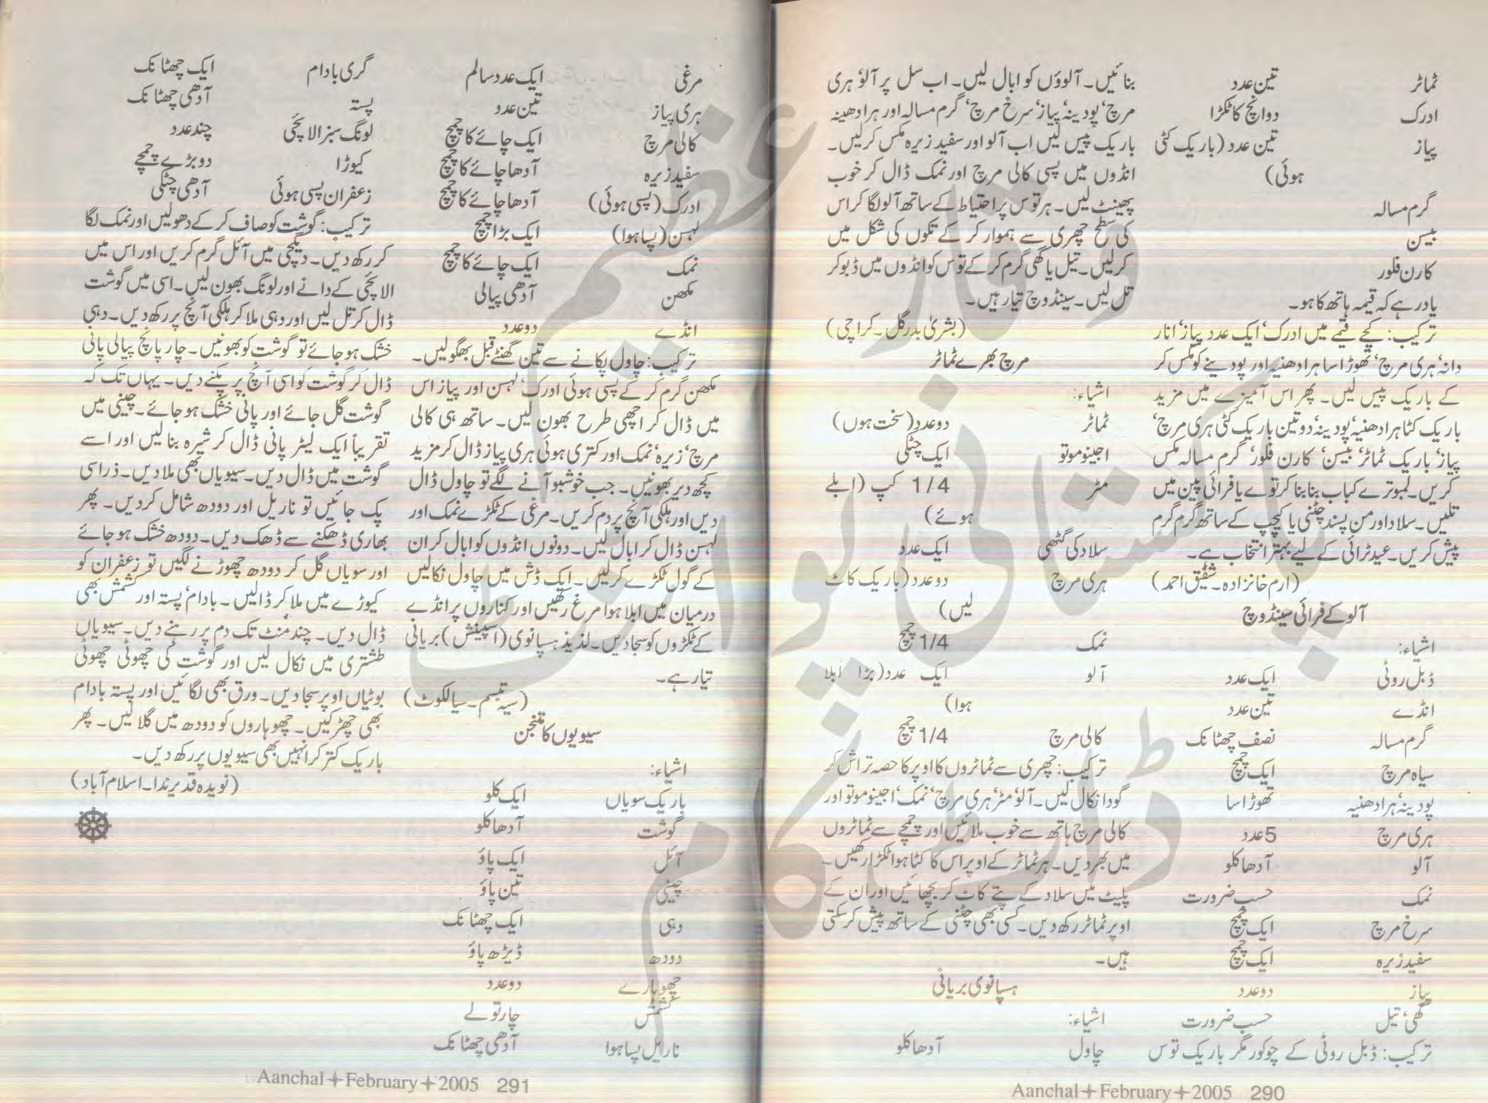 ٹماٹر تین عدد
ادرک دو انچ کا ٹکڑا
پیاز تین عدد (باریک کٹی
ہوئی)
گرم مسالہ
بیسن
کارن فلور
یاد رہے کہ قیمہ ہاتھ کا ہو۔
ترکیب: کچے قیمے میں ادرک‘ ایک عدد پیاز‘ انار
دانہ‘ ہری مرچ‘ تھوڑا سا ہرا دھنیہ اور پودینے کو مکس کر
کے باریک پیس لیں۔ پھر اس آمیزے میں مزید
باریک کٹا ہرا دھنیہ‘ پودینہ‘ دو تین باریک کٹی ہری مرچ‘
پیاز‘ باریک ٹماٹر‘ بیسن‘ کارن فلور‘ گرم مسالہ مکس
کریں۔ لمبوترے کباب بنا بنا کر توے یا فرائی پین میں
تلیں۔ سلاد اور من پسند چٹنی یا کیچپ کے ساتھ گرم گرم
پیش کریں۔ عید ٹرائی کے لیے بہتر انتخاب ہے۔
(ارم خانزادہ۔ شفیق احمد)
آلو کے فرائی سینڈوچ
اشیاء:
ڈبل روٹی ایک عدد
انڈے تین عدد
گرم مسالہ نصف چھٹانک
سیاہ مرچ ایک چمچ
پودینہ‘ ہرا دھنیہ تھوڑا سا
ہری مرچ 5 عدد
آلو آدھا کلو
نمک حسب ضرورت
سرخ مرچ ایک چمچ
سفید زیرہ ایک چمچ
پیاز دو عدد
گھی‘ تیل حسب ضرورت
ترکیب: ڈبل روٹی کے چوکور مگر باریک توس
بنائیں۔ آلوؤں کو ابال لیں۔ اب سل پر آلو‘ ہری
مرچ‘ پودینہ‘ پیاز‘ سرخ مرچ‘ گرم مسالہ اور ہرا دھنیہ
باریک پیس لیں اب آلو اور سفید زیرہ مکس کر لیں۔
انڈوں میں پسی کالی مرچ اور نمک ڈال کر خوب
پھینٹ لیں۔ ہر توس پر احتیاط کے ساتھ آلو لگا کر اس
کی سطح چھری سے ہموار کر کے تکون کی شکل میں
کر لیں۔ تیل یا گھی گرم کر کے توس کو انڈوں میں ڈبو کر
تل لیں۔ سینڈوچ تیار ہیں۔
(بشریٰ بدر گل۔ کراچی)
مرچ بھرے ٹماٹر
اشیاء:
ٹماٹر دو عدد (سخت ہوں)
اجینو موتو ایک چٹکی
مٹر 1/4 کپ (ابلے
ہوئے)
سلاد کی گٹھی ایک عدد
ہری مرچ دو عدد (باریک کاٹ
لیں)
نمک 1/4 چمچ
آلو ایک عدد (بڑا ابلا
ہوا)
کالی مرچ 1/4 چمچ
ترکیب: چھری سے ٹماٹروں کا اوپر کا حصہ تراش کر
گودا نکال لیں۔ آلو‘ مٹر‘ ہری مرچ‘ نمک‘ اجینو موتو اور
کالی مرچ ہاتھ سے خوب ملائیں اور چمچے سے ٹماٹروں
میں بھر دیں۔ ہر ٹماٹر کے اوپر اس کا کٹا ہوا ٹکڑا رکھیں۔
پلیٹ میں سلاد کے پتے کاٹ کر بچھائیں اور ان کے
اوپر ٹماٹر رکھ دیں۔ کسی بھی چٹنی کے ساتھ پیش کر سکتی
ہیں۔
ہسپانوی بریانی
اشیاء:
چاول آدھا کلو
Aanchal+February+2005 290
مرغی ایک عدد سالم
ہری پیاز تین عدد
کالی مرچ ایک چائے کا چمچ
سفید زیرہ آدھا چائے کا چمچ
ادرک (پسی ہوئی) آدھا چائے کا چمچ
لہسن (پسا ہوا) ایک بڑا چمچ
نمک ایک چائے کا چمچ
مکھن آدھی پیالی
انڈے دو عدد
ترکیب: چاول پکانے سے تین گھنٹے قبل بھگو لیں۔
مکھن گرم کر کے پسی ہوئی ادرک‘ لہسن اور پیاز اس
میں ڈال کر اچھی طرح بھون لیں۔ ساتھ ہی کالی
مرچ‘ زیرہ‘ نمک اور کتری ہوئی ہری پیاز ڈال کر مزید
کچھ دیر بھونیں۔ جب خوشبو آنے لگے تو چاول ڈال
دیں اور ہلکی آنچ پر دم کریں۔ مرغی کے ٹکڑے نمک اور
لہسن ڈال کر ابال لیں۔ دونوں انڈوں کو ابال کر ان
کے گول ٹکڑے کر لیں۔ ایک ڈش میں چاول نکالیں
درمیان میں ابلا ہوا مرغ رکھیں اور کناروں پر انڈے
کے ٹکڑوں کو سجا دیں۔ لذیذ ہسپانوی (اسپینش) بریانی
تیار ہے۔
(سیہ تبسم۔ سیالکوٹ)
سیویوں کا متنجن
اشیاء:
باریک سویاں ایک کلو
گوشت آدھا کلو
آئل ایک پاؤ
چینی تین پاؤ
دہی ایک چھٹانک
دودھ ڈیڑھ پاؤ
چھوہارے دو عدد
کشمش چار تولے
ناریل پسا ہوا آدھی چھٹانک
گری بادام ایک چھٹانک
پستہ آدھی چھٹانک
لونگ سبز الائچی چند عدد
کیوڑا دو بڑے چمچے
زعفران پسی ہوئی آدھی چٹکی
ترکیب: گوشت کو صاف کر کے دھو لیں اور نمک لگا
کر رکھ دیں۔ دیگچی میں آئل گرم کریں اور اس میں
الائچی کے دانے اور لونگ بھون لیں۔ اسی میں گوشت
ڈال کر تل لیں اور دہی ملا کر ہلکی آنچ پر رکھ دیں۔ دہی
خشک ہو جائے تو گوشت کو بھونیں۔ چار پانچ پیالی پانی
ڈال کر گوشت کو اسی آنچ پر پکنے دیں۔ یہاں تک کہ
گوشت گل جائے اور پانی خشک ہو جائے۔ چینی میں
تقریباً ایک لیٹر پانی ڈال کر شیرہ بنا لیں اور اسے
گوشت میں ڈال دیں۔ سیویاں بھی ملا دیں۔ ذرا سی
پک جائیں تو ناریل اور دودھ شامل کر دیں۔ پھر
بھاری ڈھکنے سے ڈھک دیں۔ دودھ خشک ہو جائے
اور سویاں گل کر دودھ چھوڑنے لگیں تو زعفران کو
کیوڑے میں ملا کر ڈالیں۔ بادام‘ پستہ اور کشمش بھی
ڈال دیں۔ چند منٹ تک دم پر رہنے دیں۔ سیویاں
طشتری میں نکال لیں اور گوشت کی چھوٹی چھوٹی
بوٹیاں اوپر سجا دیں۔ ورق بھی لگائیں اور پستہ بادام
بھی چھڑکیں۔ چھوہاروں کو دودھ میں گلا لیں۔ پھر
باریک کتر کر انہیں بھی سیویوں پر رکھ دیں۔
(نویدہ قدیر ندا۔ اسلام آباد)
Aanchal+February+2005 291
عظیم
وقار
پاکستانی پوائنٹ
ڈاٹ کام